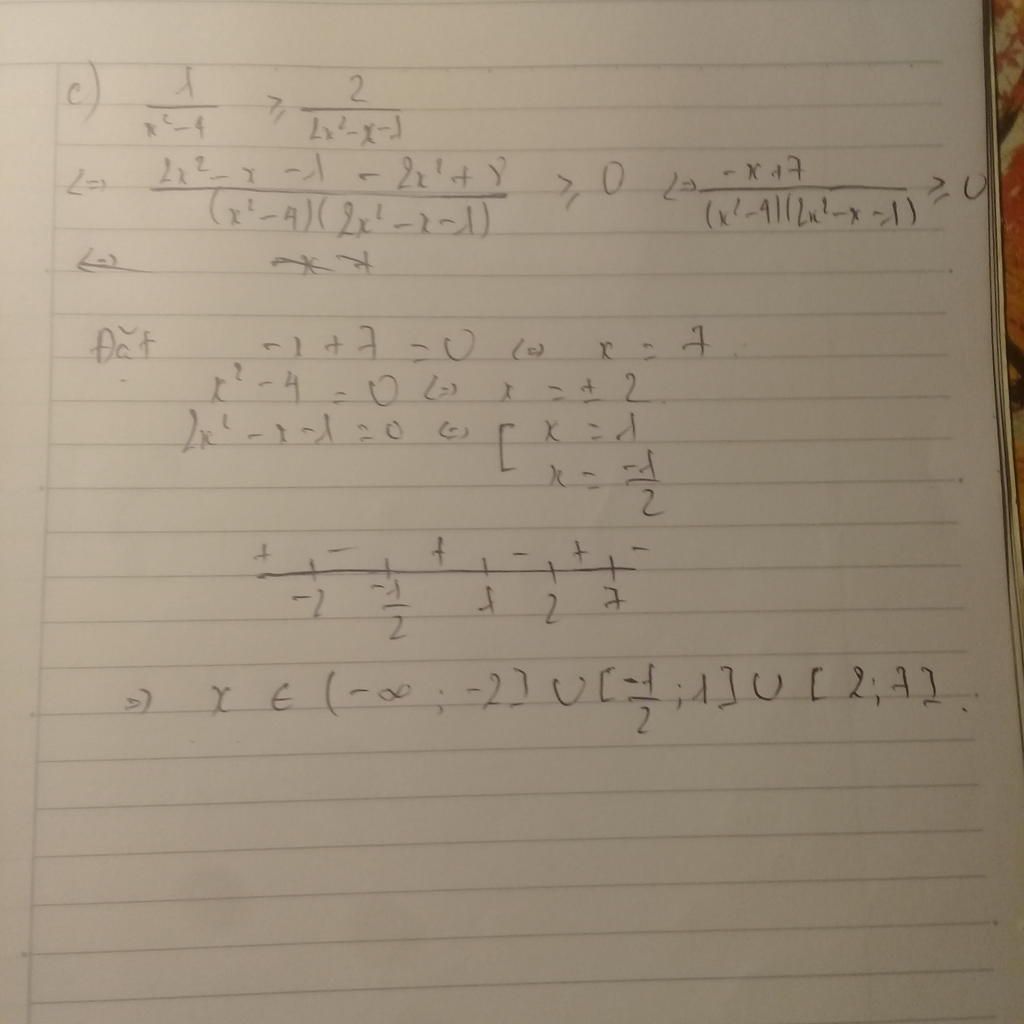 c) 1/(x²-4) ≥ 2/(2x²-x-1)
<=> (2x²-x-1-2x²+8)/((x²-4)(2x²-x-1)) ≥ 0 <=> (-x+7)/((x²-4)(2x²-x-1)) ≥ 0
Đặt -x+7=0 <=> x=7.
x²-4=0 <=> x=±2.
2x²-x-1=0 <=> [ x=1
x=-1/2
+ - + - + -
-2 -1/2 1 2 7
=> x ∈ (-∞; -2] ∪ [-1/2; 1] ∪ [2; 7].